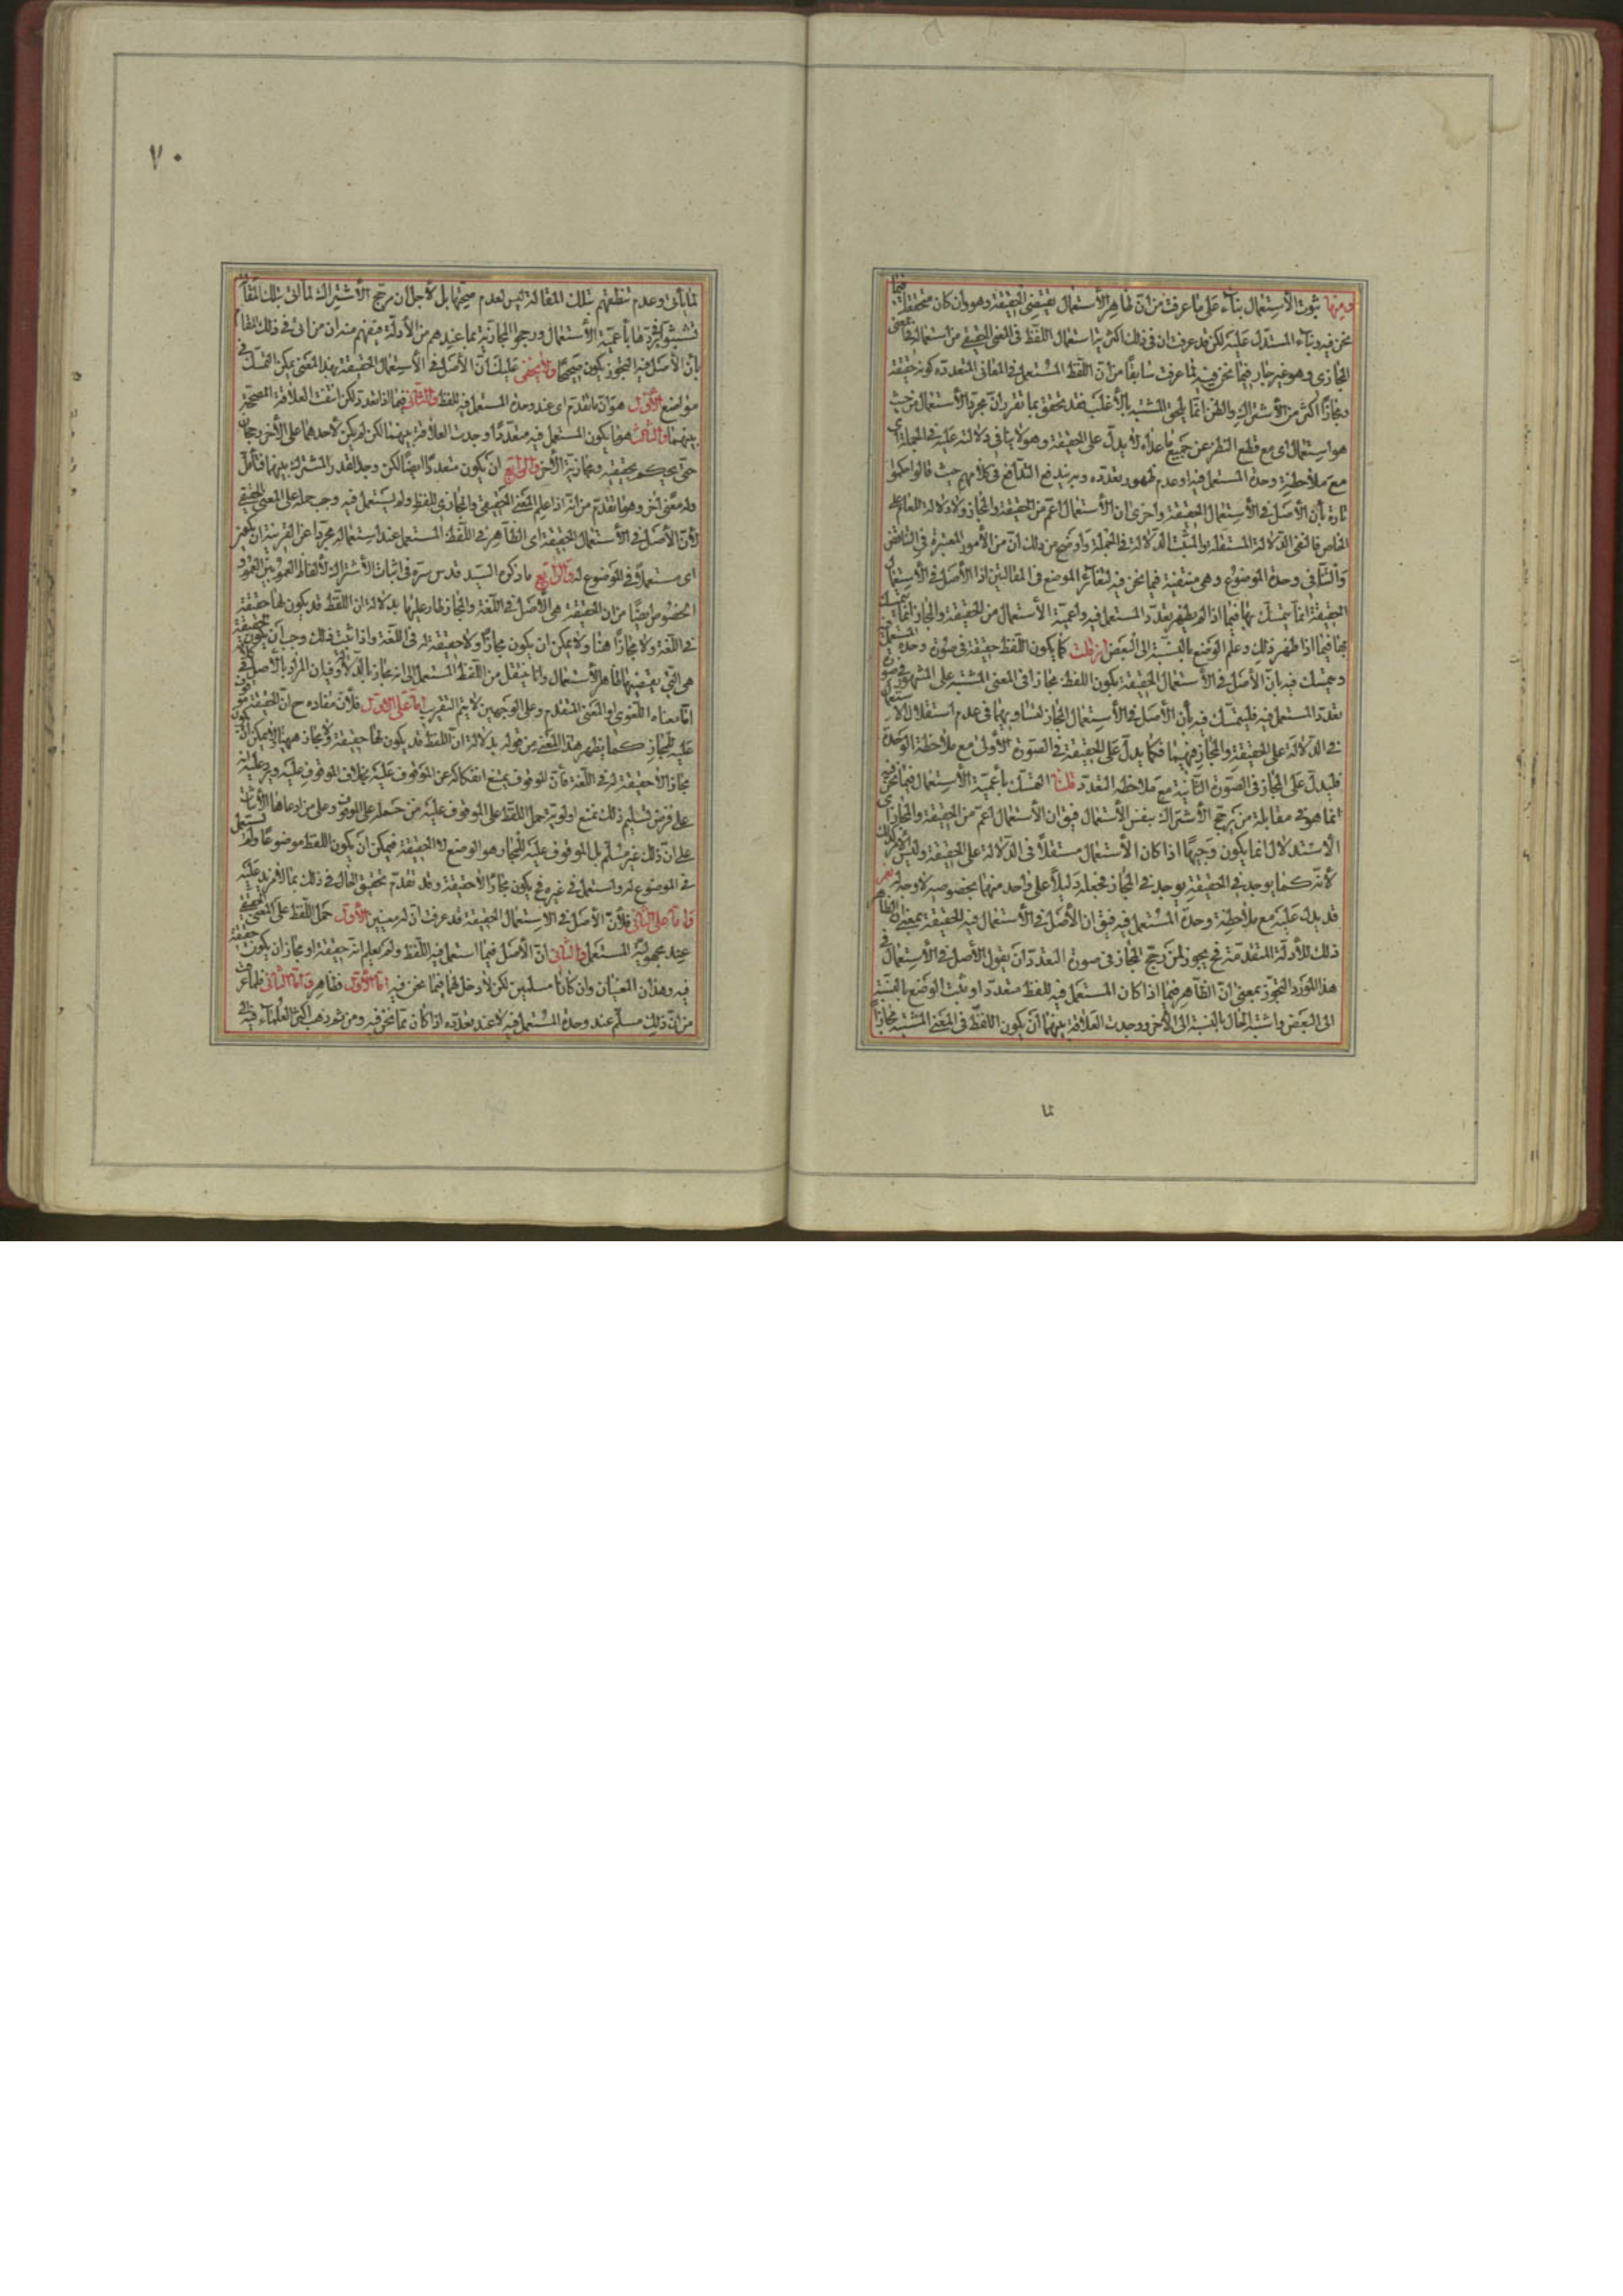 ومنها ثبوت الأستعمال بناء على ما عرفت من ان ظاهر الأستعمال يقتضى الحقيقة وهو وان كان متحققا فيما
نحن فيه وبناء المستدل عليه لكن قد عرفت ان فى ذلك اكثرية استعمال اللفظ فى المعنى الحقيقى من استعماله فى المعنى
المجازى وهو غير جار فيما نحن فيه لما عرفت سابقا من ان اللفظ المستعمل فى المعانى المتعددة كونه حقيقة
ومجازا اكثر من الأشتراك والظن انما يلحق المشتبه بالأغلب فقد تحقق بما تقرر ان مجرد الأستعمال من حيث
هو استعمال اى مع قطع النظر عن جميع ما عداه لا يدل على الحقيقة وهو لا ينافى دلالته عليه فى الجملة اى
مع ملاحظة وحدة المستعمل فيه او عدم ظهور تعدده وبه يندفع التدافع فى كلامهم حيث قالوا حكموا
تارة بأن الأصل فى الأستعمال الحقيقة واخرى ان الأستعمال اعم من الحقيقة والمجاز ولا دلالة للعام على
الخاص فالنفى الدلالة المستقلة والمثبت الدلالة فى الجملة واوضح من ذلك ان من الأمور المعتبرة فى التناقض
والتنافى وحدة الموضوع وهى منتفية فيما نحن فيه لتغاير الموضع فى المقالتين اذ الأصل فى الأستعمال
الحقيقة انما يتمسك بها فيما اذا لم يظهر تعدد المستعمل فيه واعمية الأستعمال من الحقيقة والمجاز انما يتمسك
بها فيما اذا ظهر ذلك وعلم الوضع بالنسبة الى البعض ان قلت كما يكون اللفظ حقيقة فى صورة وحدة المستعمل فيه
ويتمسك فيه بان الأصل فى الأستعمال الحقيقة يكون اللفظ مجازا فى المعنى المشتبه على المشهور فى صورة
تعدد المستعمل فيه فليتمسك فيه بأن الأصل فى الأستعمال المجاز لتساويهما فى عدم استقلال الأستعمال
فى الدلالة على الحقيقة والمجاز فيهما فكما يدل على الحقيقة فى الصورة الأولى مع ملاحظة الوحدة
فليدل على المجاز فى الصورة الثانية مع ملاحظة التعدد قلنا التمسك بأعمية الأستعمال فيما نحن فيه
انما هو فى مقابلة من يرجح الأشتراك بنفس الأستعمال فيق ان الأستعمال اعم من الحقيقة والمجاز اى
الأستدلال انما يكون وجيها اذا كان الأستعمال مستقلا فى الدلالة على الحقيقة وليس الأمر كذلك
لأنه كما يوجد فى الحقيقة يوجد فى المجاز فجعله دليلا على واحد منهما بخصوصه لا وجه له نعم
قد يدل عليه مع ملاحظة وحدة المستعمل فيه فيق ان الأصل فى الأستعمال فيه للحقيقة بمعنى الظاهر
ذلك للأدلة المتقدمة فح يجوز لمن رجح المجاز فى صورة التعدد ان يقول الأصل فى الأستعمال فى
هذا المورد التجوز بمعنى ان الظاهر فيما اذا كان المستعمل فيه للفظ متعددا وثبت الوضع بالنسبة
الى البعض واشتبه الحال بالنسبة الى الأخر ووجدت العلاقة بينهما ان يكون اللفظ فى المعنى المشتبه مجازا
لما
٧٠
لما يأتى وعدم تنطقهم بتلك المقالة ليس لعدم صحتها بل لأجل ان مرجح الأشتراك لما اتى بتلك المقالة
تشبثوا فى ردها بأعمية الأستعمال ورجحوا المجازية بما عندهم من الأدلة فيفهم منه ان من اتى فى ذلك المقام
بأن الأصل فيه التجوز يكون صحيحا ولا يخفى عليك ان الأصل فى الأستعمال الحقيقة بهذا المعنى يمكن التمسك فى
مواضع الأول هو ان ما تقدم اى عند وحدة المستعمل فيه للفظ والثانى فيما اذا تعدد لكن انتفت العلاقة المصححة
بينهما والثالث هو ما يكون المستعمل فيه متعددا ووجدت العلاقة بينهما لكن لم يكن لأحدهما على الأخر رجحان
حتى يحكم بحقيقيته ومجازية الأخر والرابع ان يكون متعددا ايضا لكن وجد القدر المشترك بينهما فتأمل
وله معنى اخر وهو ما تقدم من انه اذا علم المعنى الحقيقى والمجازى للفظ ولم يستعمل فيه وجب حمله على المعنى الحقيقى
لأن الأصل فى الأستعمال الحقيقة اى الظاهر فى اللفظ المستعمل عند استعماله مجردا عن القرينة ان يكون
اى مستعملا فى الموضوع له والرابع ما ذكره السيد قدس سره فى اثبات الأشتراك لألفاظ العموم بين العموم و
الخصوص ايضا من ان الحقيقة هى الأصل فى اللغة والمجاز طار عليها بدلالة ان اللفظ قد يكون لها حقيقة
فى اللغة ولا مجاز لها هنا ولا يمكن ان يكون مجازا ولا حقيقة له فى اللغة واذا ثبت ذلك وجب ان يكون الحقيقة
هى التى يقتضيها ظاهر الأستعمال وانما ينتقل من اللفظ المستعمل الى انه مجاز بالدلالة وفيه ان المراد بالأصل فى
اما معناه اللغوى او المعنى المتقدم وعلى الوجهين لا يتم التقريب اما على الأول فلأن مفاده ح ان الحقيقة موقوف
عليه للمجاز كما يظهر هذا المعنى من قوله بدلالة ان اللفظ قد يكون لها حقيقة ولا مجاز ههنا لا يمكن ان يكون
مجازا لا حقيقة له فى اللغة فأن الموقوف يمتنع انفكاكه عن الموقوف عليه بخلاف الموقوف عليه ويرد عليه انه
على فرض تسليم ذلك نمنع اولوية حمل اللفظ على الموقوف عليه من حمله على الموقوف وعلى من ادعاها الأثبات
على ان ذلك غير مسلم بل الموقوف عليه للمجاز هو الوضع لا الحقيقة فيمكن ان يكون اللفظ موضوعا ولم يستعمل
فى الموضوع له واستعمل فى غيره فح يكون مجازا لا حقيقة وقد تقدم تحقيق الحال فى ذلك بما لا مزيد عليه
واما على الثانى فلأن الأصل فى الأستعمال الحقيقة قد عرفت ان له معنيين الأول حمل اللفظ على المعنى الحقيقى
عند مجهولية المستعمل والثانى ان الأصل فيما استعمل فيه اللفظ ولم يعلم انه حقيقة او مجاز ان يكون حقيقة
فيه وهذان المعنيان وان كانا مسلمين لكن لا دخل لهما فيما نحن فيه اما الأول فظاهر واما الثانى فلما عرفت
من ان ذلك مسلم عند وحدة المستعمل فيه لا عند تعدده اذا كان مما نحن فيه ومن ثم ذهب اكثر العلماء فيه الى